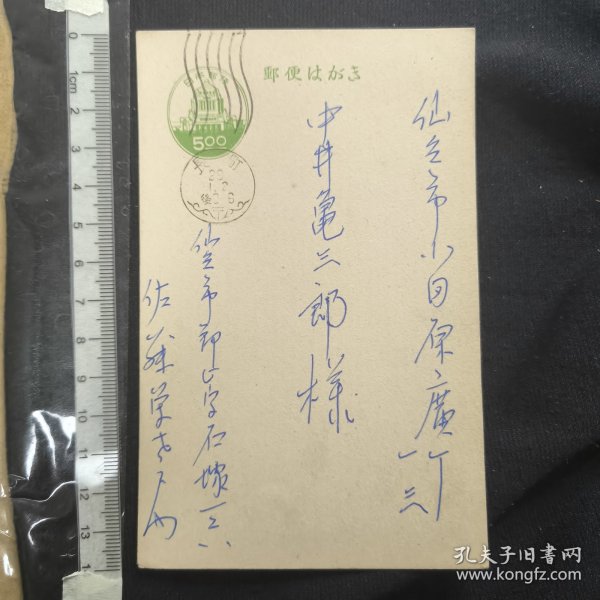 郵便はがき
日本郵便
5.00
仙台市小田原廣丁
一三
中井亀三郎様
仙台市郡山字石塚一三八
佐藤
0 1cm 2 3 4 5 6 7 8 9 10 11 12 13
孔夫子旧书网
www.kongfz.com